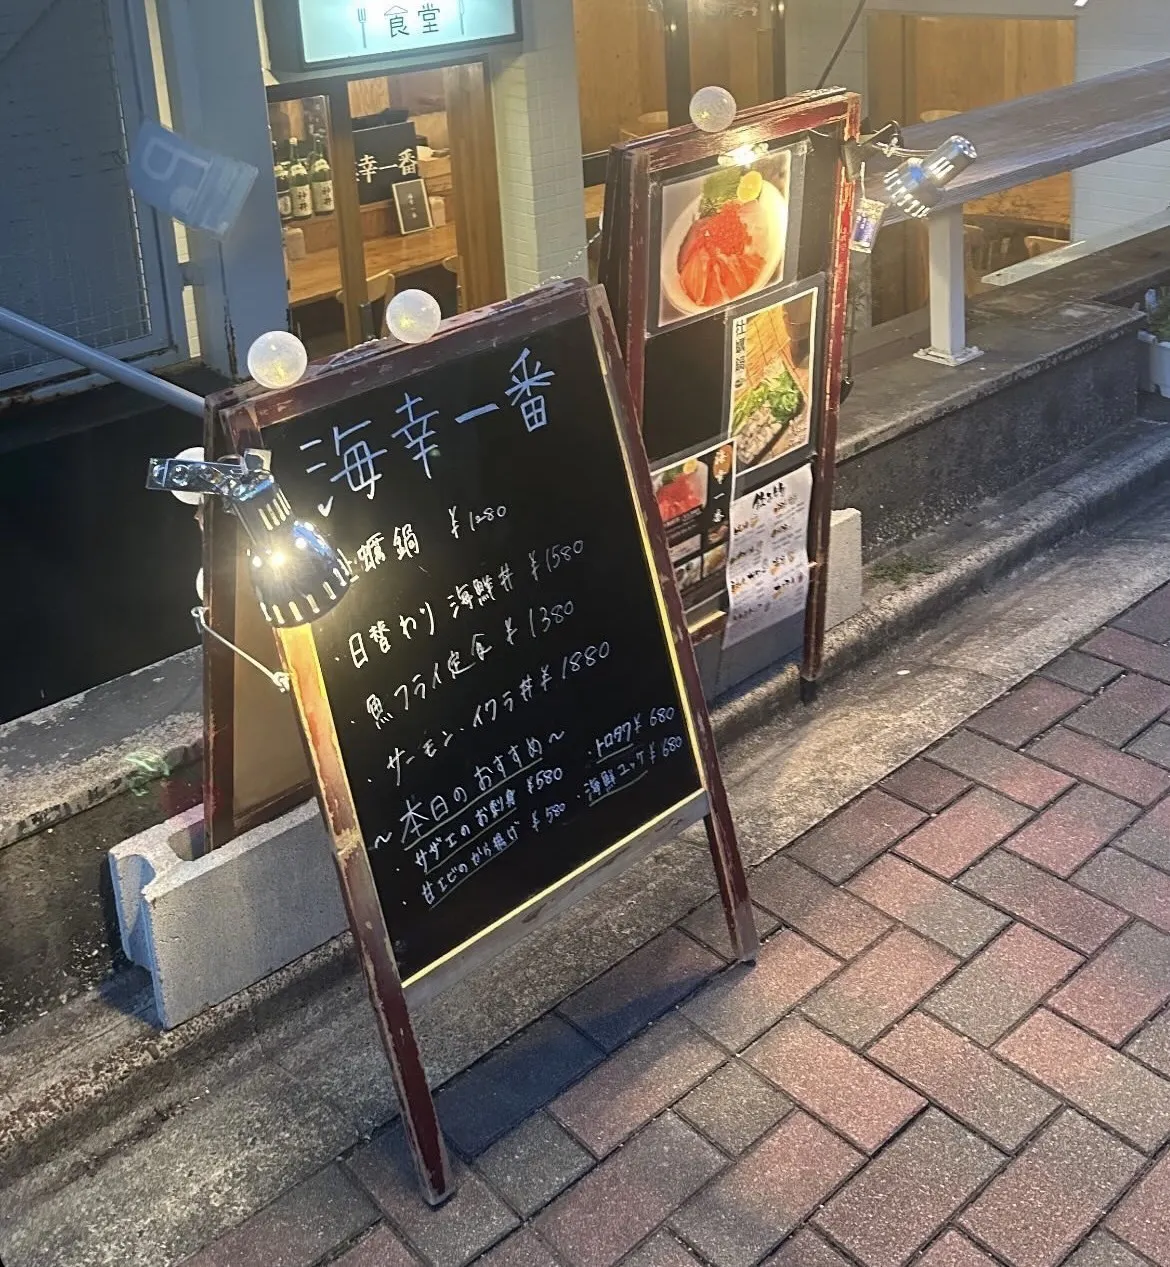 食堂
幸一番
海幸一番
蠣鍋 ¥1280
・日替わり 海鮮丼 ¥1580
・魚フライ定食 ¥1380
・サーモン・イクラ丼 ¥1880
〜本日のおすすめ〜
・サザエのお刺身 ¥580
・甘エビのから揚げ ¥580
・トロタク ¥680
・海鮮ユッケ ¥680
牡蠣鍋
海幸一番